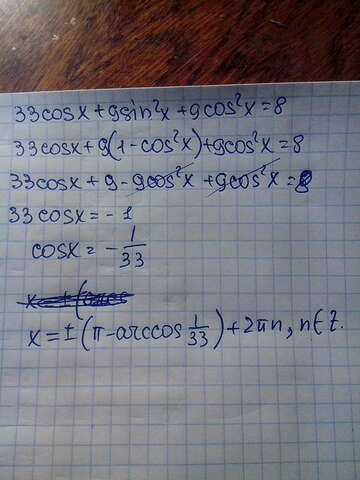 33cosx+9sin²x+9cos²x=8
33cosx+9(1-cos²x)+9cos²x=8
33cosx+9-9cos²x+9cos²x=8
33cosx=-1
cosx=-1/33
x=±(π-arccos 1/33)+2πn, n∈Z.